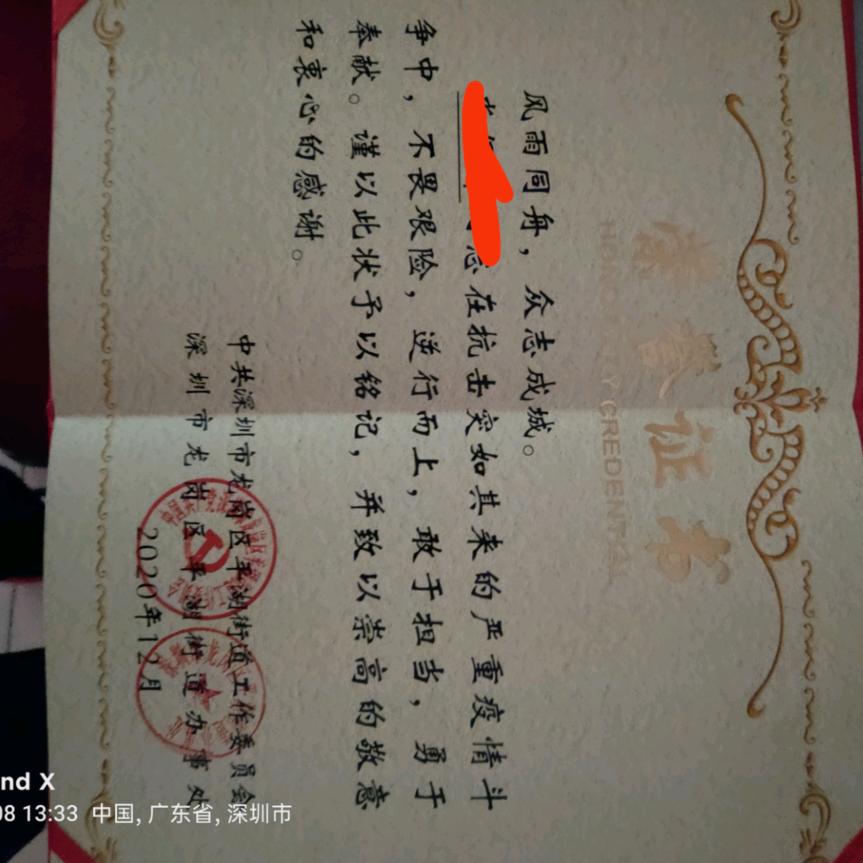 荣誉证书
HONORARY CREDENTIAL
风雨同舟，众志成城。
同志在抗击突如其来的严重疫情斗
争中，不畏艰险，逆行而上，敢于担当，勇于
奉献。谨以此状予以铭记，并致以崇高的敬意
和衷心的感谢。
中共深圳市龙岗区平湖街道工作委员会
深圳市龙岗区平湖街道办事处
2020年12月
nd X
08 13:33 中国, 广东省, 深圳市